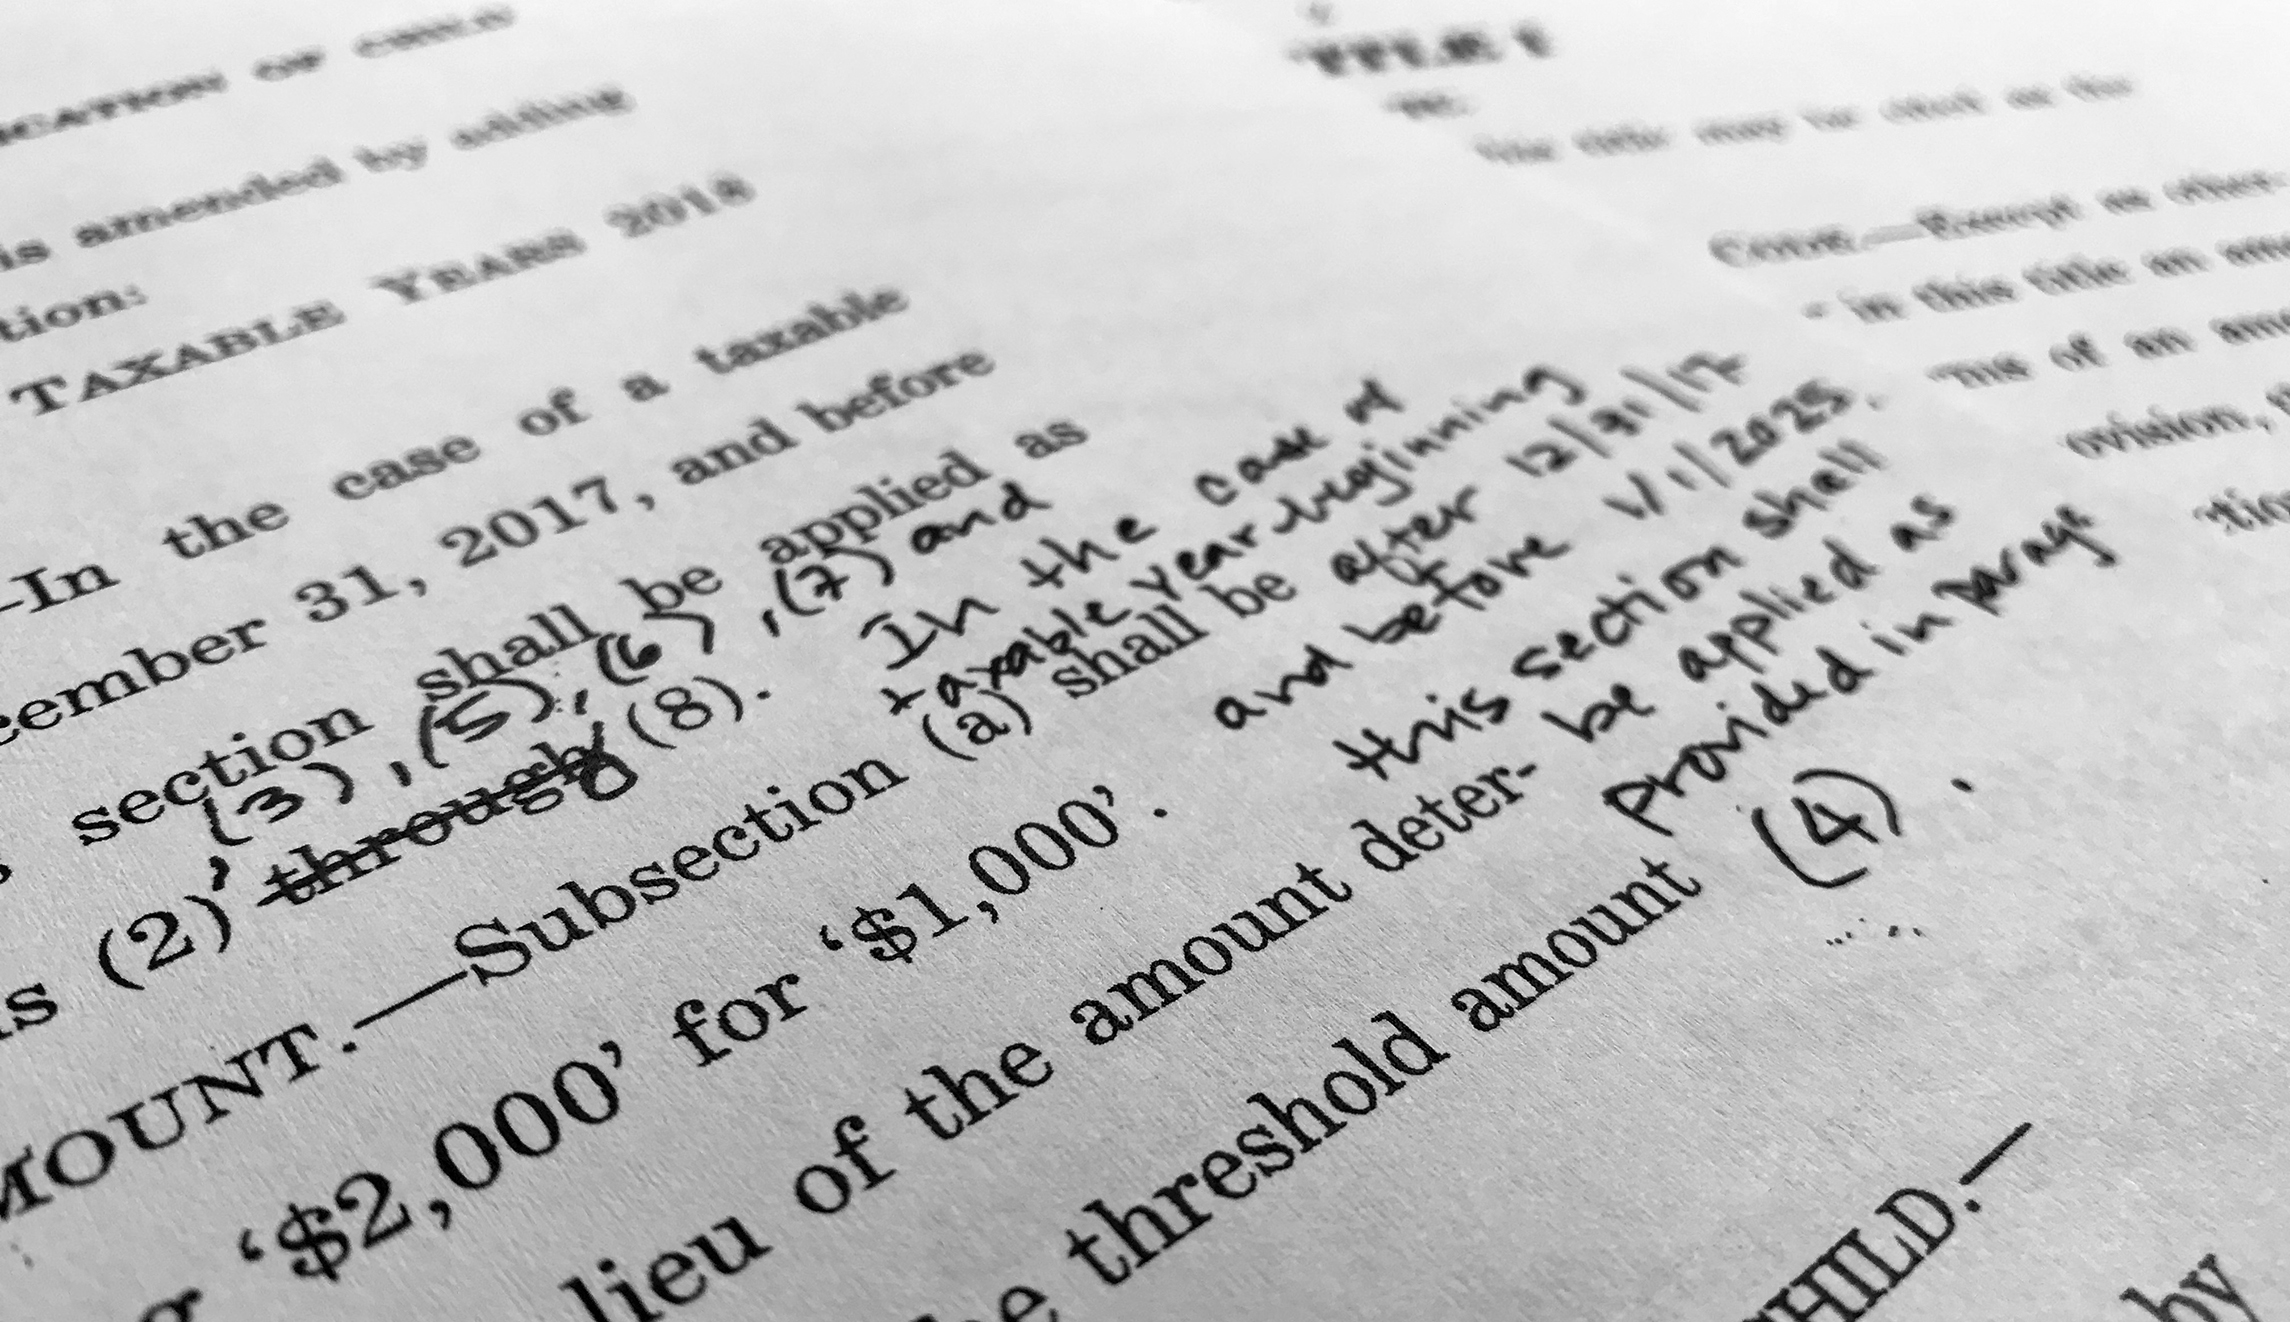 OF CHILD
is amended by adding
tion:
TAXABLE YEARS 2018
—In the case of a taxable
cember 31, 2017, and before
section shall be applied as
, (3), (5), (6), (7) and
s (2) through (8). In the case of
taxable year beginning
MOUNT.—Subsection (a) shall be after 12/31/17
and before 1/1/2025,
g '$2,000' for '$1,000'. this section shall
lieu of the amount deter- be applied as
provided in parag
e threshold amount (4).
HILD.—
by
title may be cited as the
CODE.—Except as other-
in this title an ame
of an ame
ovision,